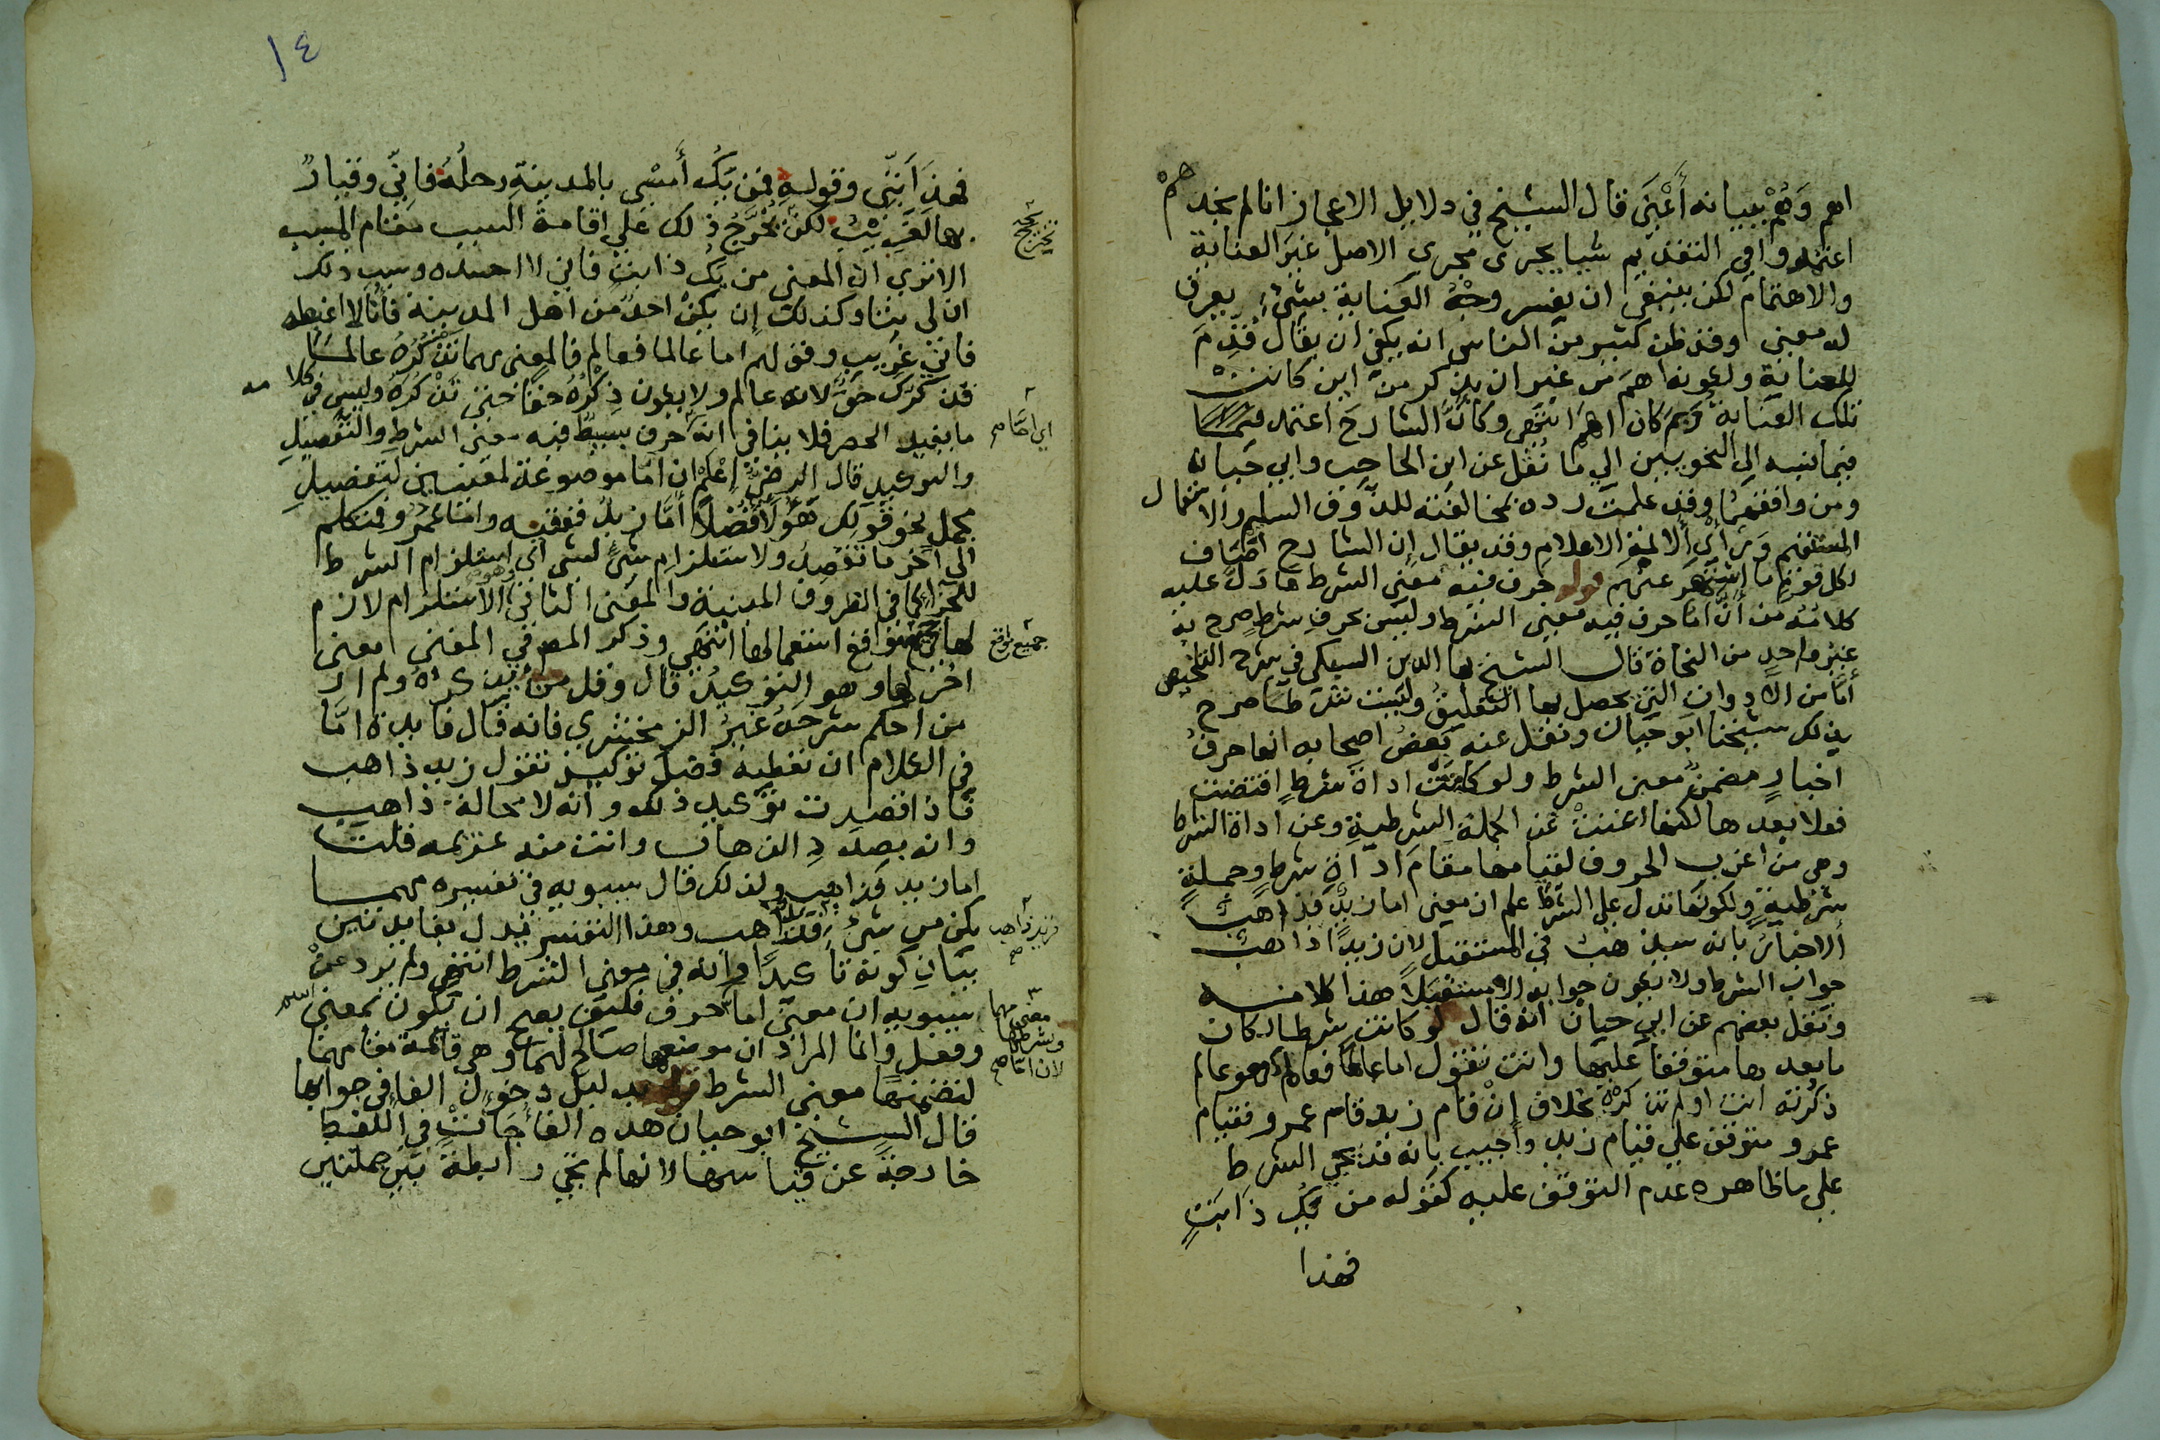 اهم وَهُمْ ببيانه أَعْنَى قال الشيخ في دلايل الاعجاز انا لم نجدهم
اعتمدوا في التقديم شيا يجرى مجرى الاصل غيرَ العناية
والاهتمام لكن ينبغي ان يفسر وجْهُ العناية بشئ يعرف
له معنى وقد ظن كثير من الناس انه يكفي ان يقال قُدِّمَ
للعناية ولكونه اهمَ من غير ان يذكر من اين كانتْ
تلك العناية وبم كان اهمَّ انتهى وكانَّ الشارحَ اعتمد
فيما نسبه الى النحويين الي ما نُقُل عن ابن الحاجب وابي حيان
ومن وافقهما وقد علمتَ رده بمخالفته للذوق السليم والاستعمال
المستقيم ورأي ألايمة الاعلام وقد يقال إن الشارح أضاف
لكل قومٍ ما اشتهر عنهم قوله حرف فيه معنى الشرط ما دلَّ عليه
كلامُه من أنَّ أمَّا حرف فيه معنى الشرط وليس بحرفِ شرطٍ صرح به
غير واحدٍ من النحاة قال الشيخ بها الدين السبكى في شرح التلخيص
أمَّا من الادوات التي يحصل بها التعليقُ وليست شرطا صرح
بذلك شيخنا ابو حيان ونقل عنه بعضُ اصحابه انها حرفُ
اخبارٍ مضمنٌ معنى الشرط ولو كانتْ اداةَ شرطٍ اقتضت
فعلا بعدها لكنها اغنتْ عن الجملة الشرطيةِ وعن اداة الشرط
وهي من اغرب الحروف لقيامها مقامَ اداةِ شرطٍ وجملةٍ
شرطيةٍ ولكونها تدل علي الشرط علم ان معنى اما زيدٌ فذاهبٌ
ألاخبارُ بانه سيذهب في المستقبل لان زيدًا ذاهبٌ
جواب الشرط ولا يكون جوابه الا مستقبَلاً هذا كلامه
ونقل بعضهم عن ابي حيان انه قال لو كانت شرطا لكان
ما بعدها متوقفا عليها وانت تقول اما عالما فعالم وهو عالم
ذكرته انت او لم تذكرْهُ بخلاف إنْ قام زيد قام عمرو فقيام
عمرو متوقف علي قيام زيد وأُجيب بانه قد يجئ الشرط
علي ما ظاهره عدم التوقف عليه كقوله من يكُ ذابَتٍّ
فهذا
١٤
فهذَ ابَتِّى وقولهِ فمن يَكُ أَمسْى بالمدينةِ رحلُهُ فاِنِّي وقيارٌ
بها لغريبُ لكنْ يُخَرَّجُ ذلك عَلي إقامة السبب مقام المسبب
الا تري ان المعنى من يكُ ذابتٍّ فاني لا احسده وسبب ذلك
ان لي بتًا وكذلك إن يكنْ احدٌ من اهل المدينة فأنا لا اغبطه
فانى غريب وقولهم اما عالما فعالم فالمعنى مهما تَذْكُرْهُ عالما
فذكرك حقٌّ لانه عالم ولا يكون ذِكْرُهُ حقًا حتى تَذْكُرَهُ وليس في كلامه
ما يفيد الحصر فلا ينافي انه حرف بسيطٌ فيه معنى الشرطِ والتفصيلِ
والتوكيدِ قال الرضىُّ إعْلَمْ ان أمَّا موضوعة لمعنيين لتفصيلِ
مجملٍ نحو قولك هؤلا فضلا أمَّا زيدٌ ففقيه وامَّا عمرٌو فمتكلم
الي آخر ما تقصد ولاستلزام شئٍ لشئٍ اي استلزام الشرط
للجزا كما في الظروف المبنية والمعنى الثاني وهو الاستلزام لازم
لها في جميع مواقع استعمالها انتهى وذكر المصو في المغنى معنى
اخر لها وهو التوكيدُ قال وقل من يذكره ولم ار
من احكم شرحَهُ غيرُ الزمخشري فانه قال فايدة امَّا
في الكلام ان تعطيه فضلَ توكيد تقول زيد ذاهب
فاذا قصدت توكيد ذلك وانه لا محالة ذاهب
وانه بصددِ الذهاب وانت منه عزيمه قلت
اما زيد فذاهب ولذلك قال سيبويه في تفسيره مهما
يكن من شئ فزيد ذاهب وهذا التفسير يُدل بفايدتين
بيَانِ كونه تاكيدًا وانه في معنى الشرط انتهى ولم يرد عن
سيبويه ان معنى اما حرف فكيف يصح ان تكون بمعني اسم
وفعل وانما المراد ان موضعها صالح لهما وهي قائمة مقامهما
لتضمنها معنى الشرط قوله بدليل دخول الفا في جوابها
قال الشيخ ابو حيان هذه الفا جاتْ في اللفظ
خارجةً عن قياسها لانها لم تجي رابطةً بين جملتين
تخريج صح
اي امَّا صح
جميع مواقع
فزيد ذاهب صح
معنى مهما وشرطها لان اما صح